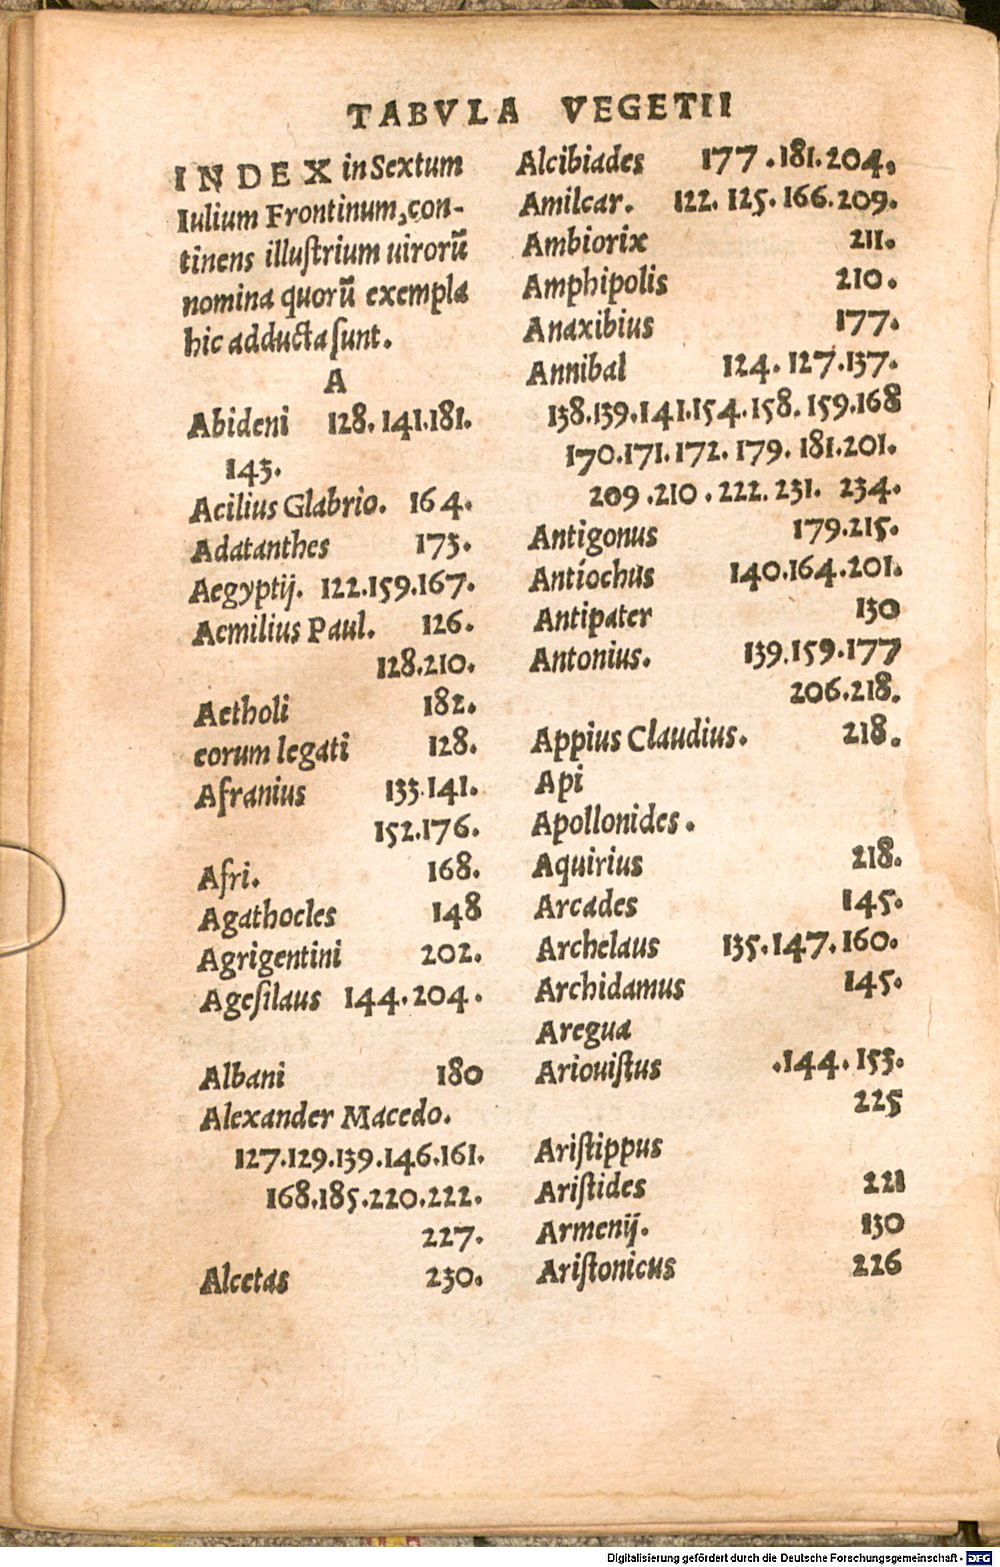 TABVLA VEGETII
INDEX in Sextum
Iulium Frontinum, con-
tinens illuſtrium uirorũ
nomina quorũ exempla
hic adducta ſunt.
A
Abideni 128. 141.181.
143.
Acilius Glabrio. 164.
Adatanthes 173.
Aegyptij. 122.159.167.
Aemilius Paul. 126.
128.210.
Aetholi 182.
eorum legati 128.
Afranius 133.141.
152.176.
Afri. 168.
Agathocles 148
Agrigentini 202.
Ageſilaus 144.204.
Albani 180
Alexander Macedo.
127.129.139.146.161.
168.185.220.222.
227.
Alcetas 230.
Alcibiades 177.181.204.
Amilcar. 122. 125. 166.209.
Ambiorix 211.
Amphipolis 210.
Anaxibius 177.
Annibal 124. 127.137.
138.139.141.154.158. 159.168
170.171.172. 179. 181.201.
209.210.222. 231. 234.
Antigonus 179.215.
Antiochus 140.164.201.
Antipater 130
Antonius. 139.159.177
206.218.
Appius Claudius. 218.
Api
Apollonides.
Aquirius 218.
Arcades 145.
Archelaus 135.147.160.
Archidamus 145.
Aregua
Ariouiſtus .144. 153.
225
Ariſtippus
Ariſtides 221
Armenij. 130
Ariſtonicus 226
Digitalisierung gefördert durch die Deutsche Forschungsgemeinschaft - DFG